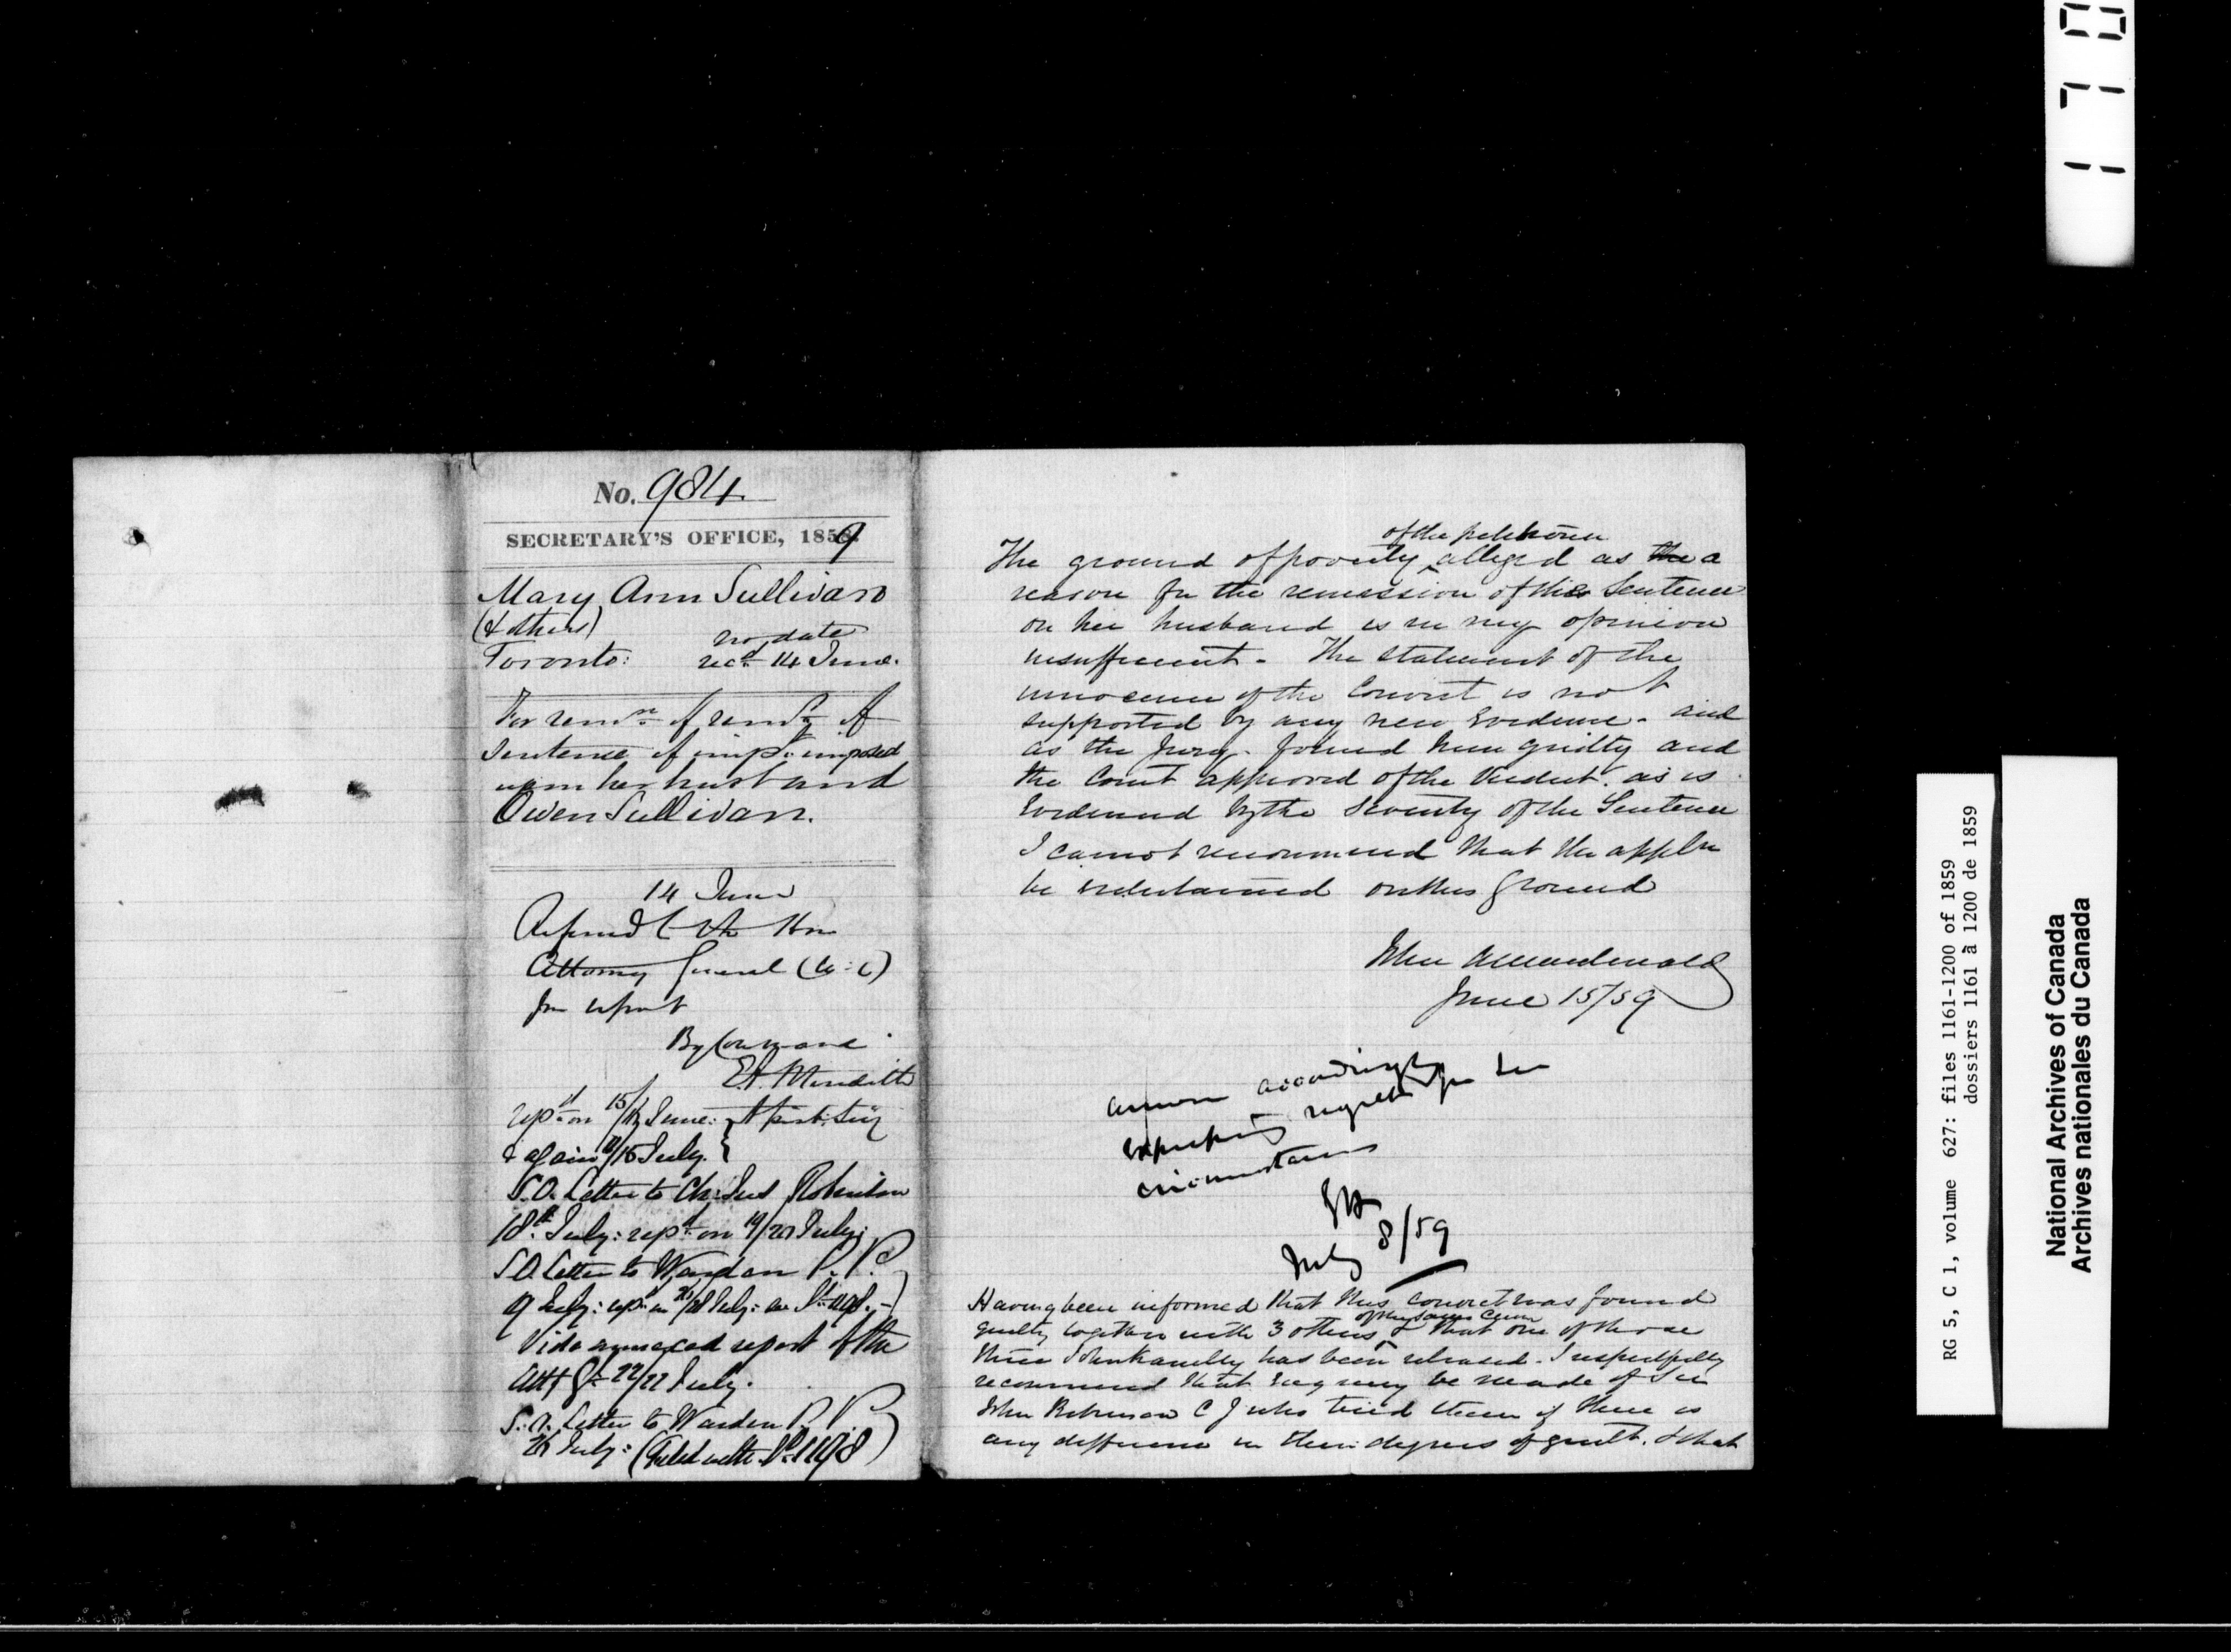 No. 984
SECRETARY'S OFFICE, 1859
Mary Ann Sullivan
(& others)
no date
Toronto: recd 14 June.
For remn. of remg. of
Sentence of impt. imposed
upon her husband
Owen Sullivan.
14 June
Referred to the Hon
Attorney General (U:C)
for report
By Command
E.A. Meredith
repd on 15/16 June:
& again 11/15 July. }
S.O. Letter to Ch: Just Robinson
18th July: repd on 19/20 July:
S.O. Letter to Warden P.P.
9 July: repd on /21 July: 1198.
Vide annexed report of the
Att Gl 22/22 July.
S.O. Letter to Warden P.P.
26 July: (Filed with No. 1198)
of the petitioner
The ground of poverty ‸ alleged as the a
reason for the remission of the Sentence
on her husband is in my opinion
insufficient. The statement of the
innocence of the Convict is not
supported by any new Evidence. and
as the Jury found him guilty and
the Court approved of the Verdict. as is
Evidenced by the severity of the Sentence
I cannot recommend that the appln
be entertained on this ground
John A Macdonald
June 15/59
answer accordingly
expressing regret for her
circumstances
July 8/59
Having been informed that this convict was found
of the same crime
guilty together with 3 others ‸ & that one of those
three John Kanelly has been released. I respectfully
recommend that enquiry be made of Sir
John Robinson C J who tried them if there is
any difference in their degrees of guilt. & what
1170
RG 5, C 1, volume 627: files 1161-1200 of 1859
dossiers 1161 à 1200 de 1859
National Archives of Canada
Archives nationales du Canada